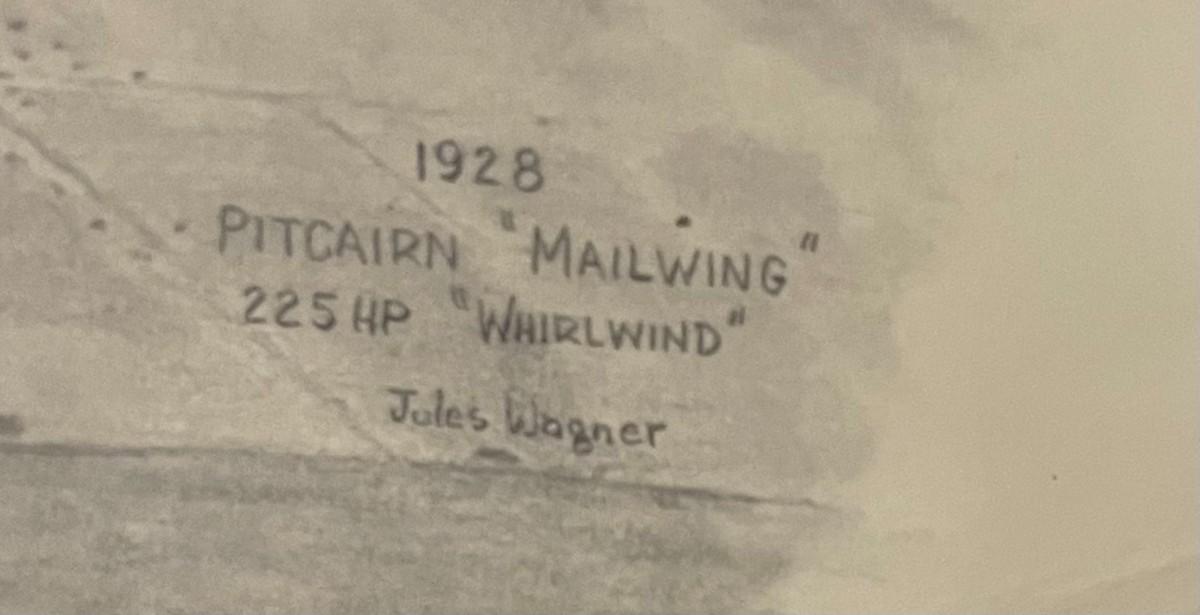 1928
PITCAIRN "MAILWING"
225 HP "WHIRLWIND"
Jules Wagner